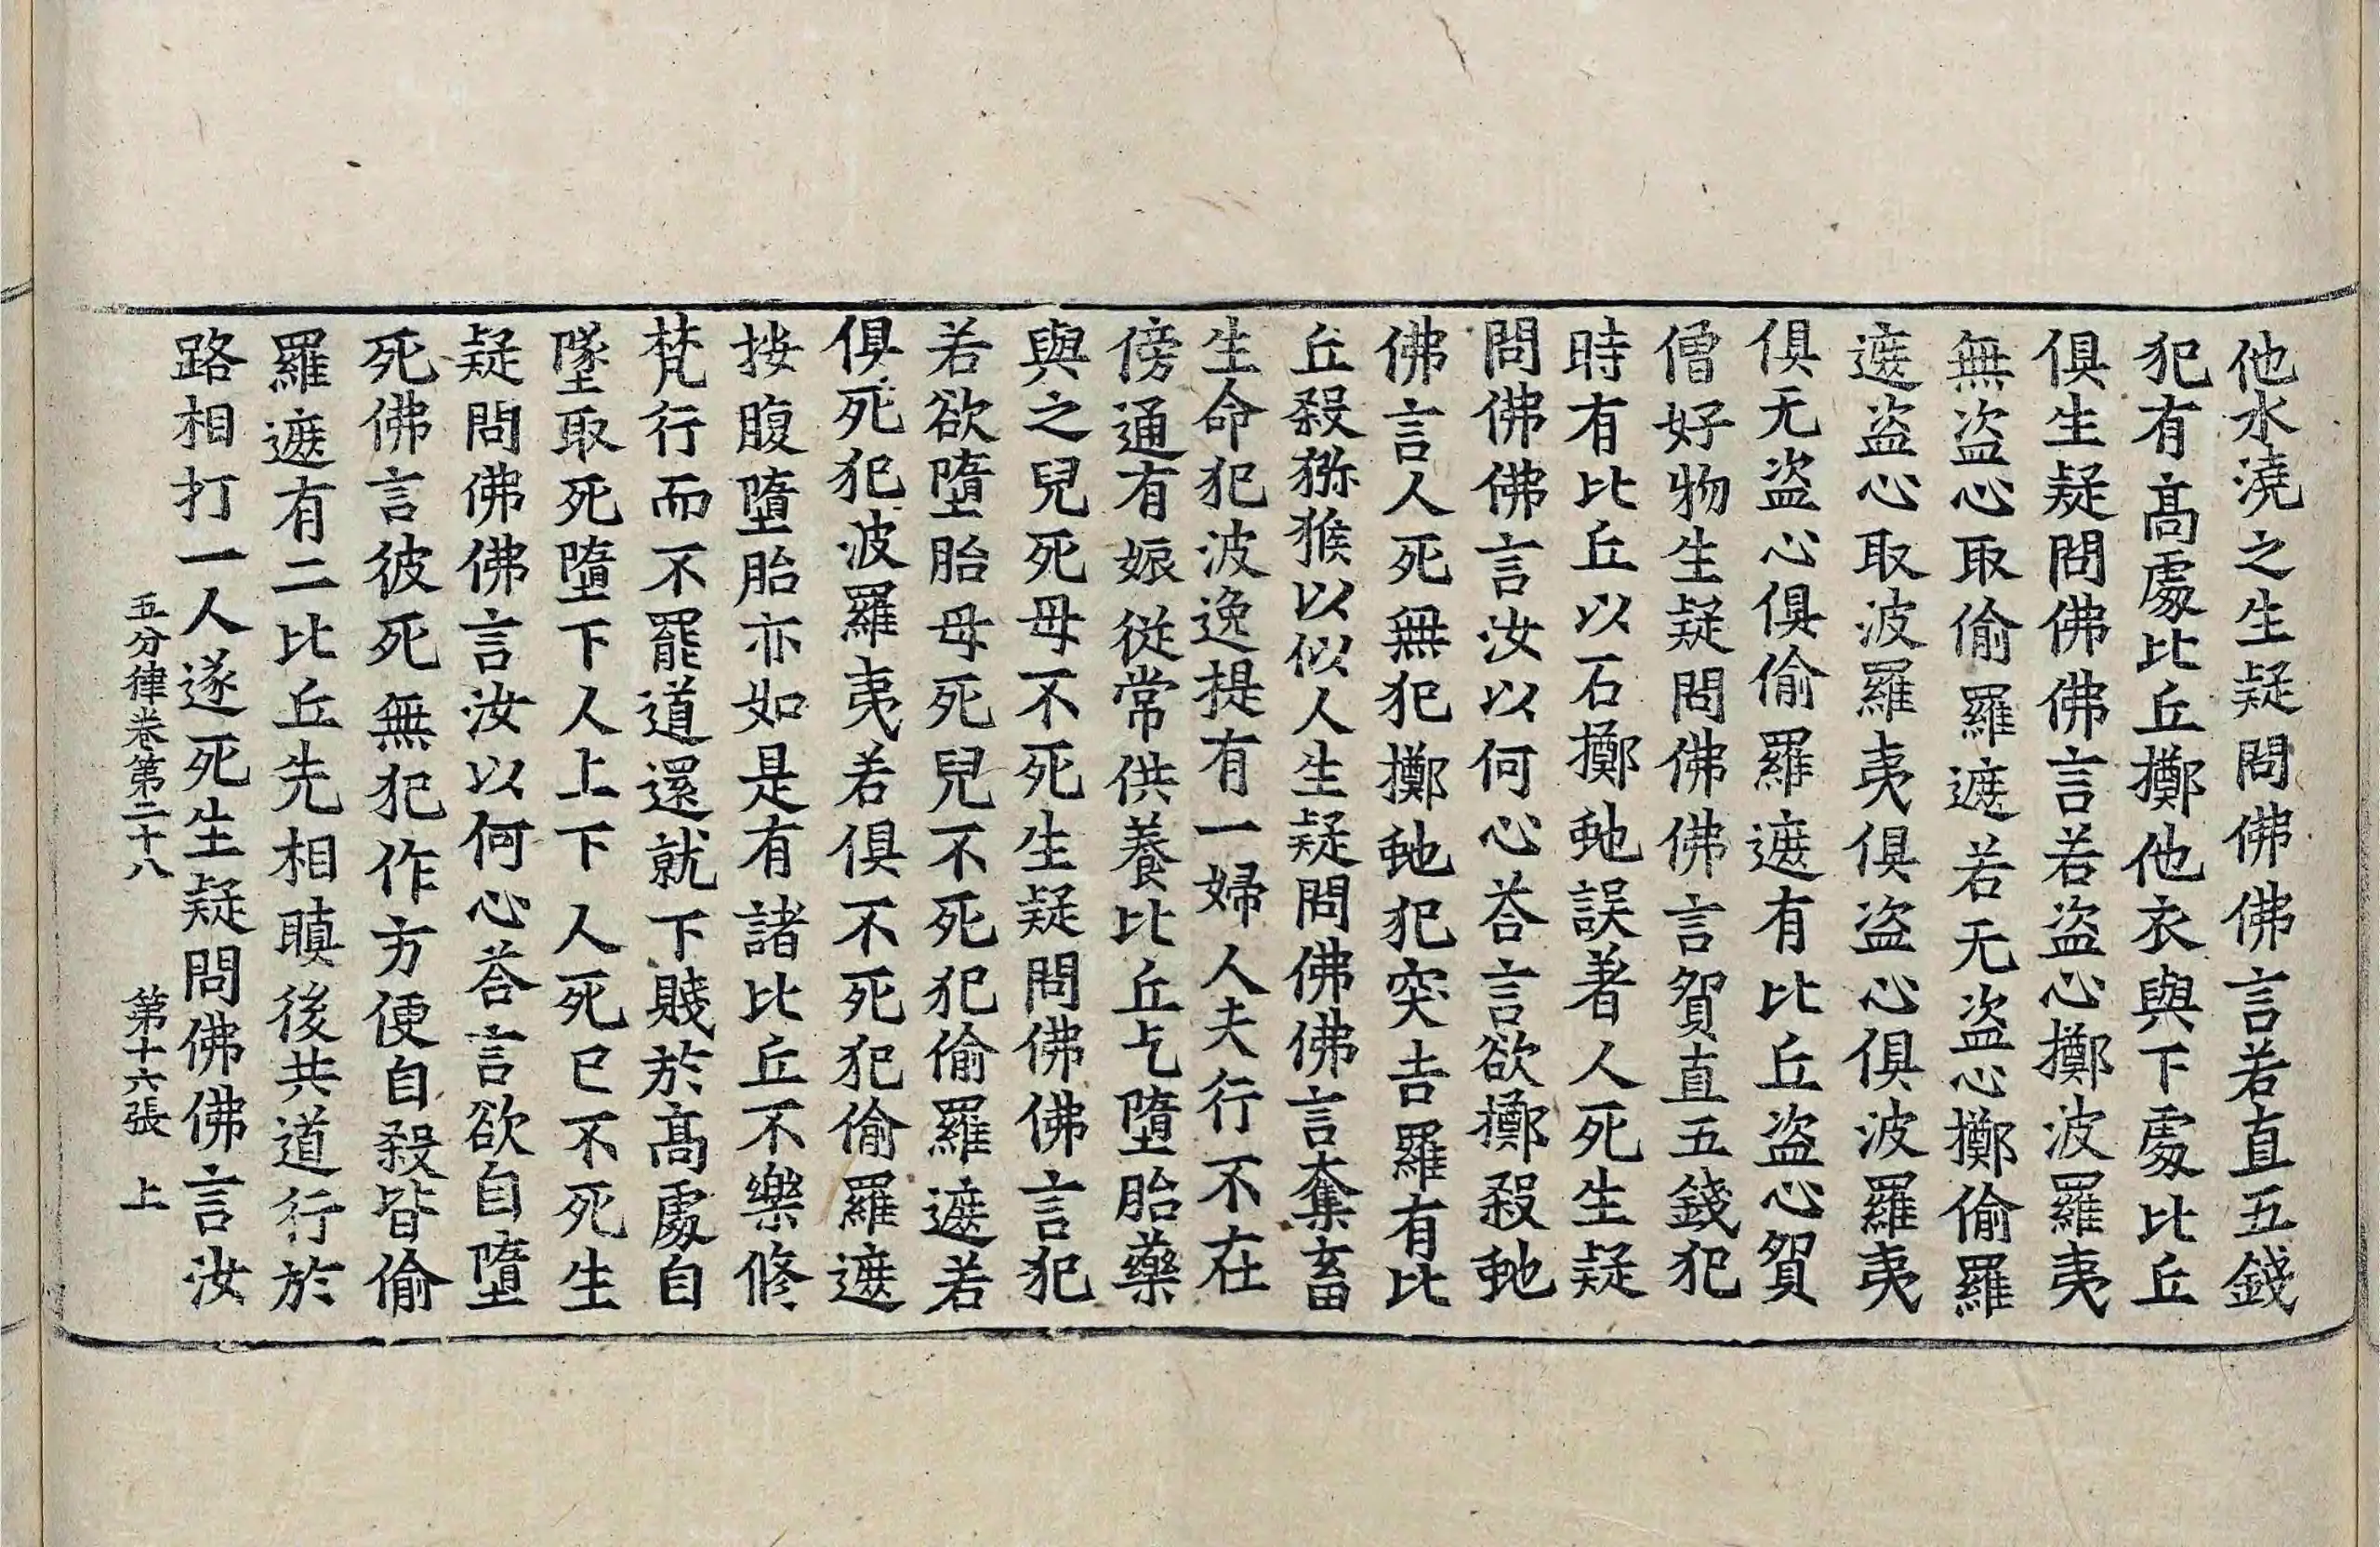 他水澆之生疑問佛佛言若直五錢
犯有髙處比丘擲他衣與下處比丘
俱生疑問佛佛言若盜心擲波羅夷
無盜心取偷羅遮若无盜心擲偷羅
遮盜心取波羅夷俱盜心俱波羅夷
俱无盜心俱偷羅遮有比丘盜心貿
僧好物生疑問佛佛言貿直五錢犯
時有比丘以石擲虵誤著人死生疑
問佛佛言汝以何心荅言欲擲殺虵
佛言人死無犯擲虵犯突吉羅有比
丘殺猕猴以似人生疑問佛佛言奪畜
生命犯波逸提有一婦人夫行不在
傍通有娠從常供養比丘乞墮胎藥
與之兒死母不死生疑問佛佛言犯
若欲墮胎母死兒不死犯偷羅遮若
俱死犯波羅夷若俱不死犯偷羅遮
按腹墮胎亦如是有諸比丘不樂修
梵行而不罷道還就下賤於髙處自
墜取死墮下人上下人死已不死生
疑問佛佛言汝以何心荅言欲自墮
死佛言彼死無犯作方便自殺皆偷
羅遮有二比丘先相瞋後共道行於
路相打一人遂死生疑問佛佛言汝
五分律卷第二十八 第十六張 上